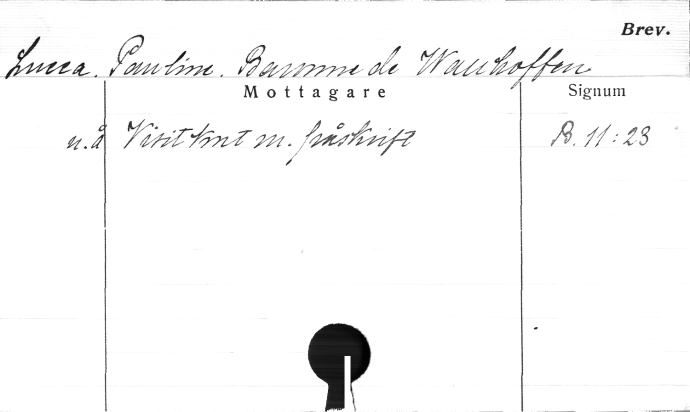 Brev.
Lucca. Pauline. Baronne de Wallhoffen
Mottagare Signum
u.å Visitkort m. påskrift B. 11:23